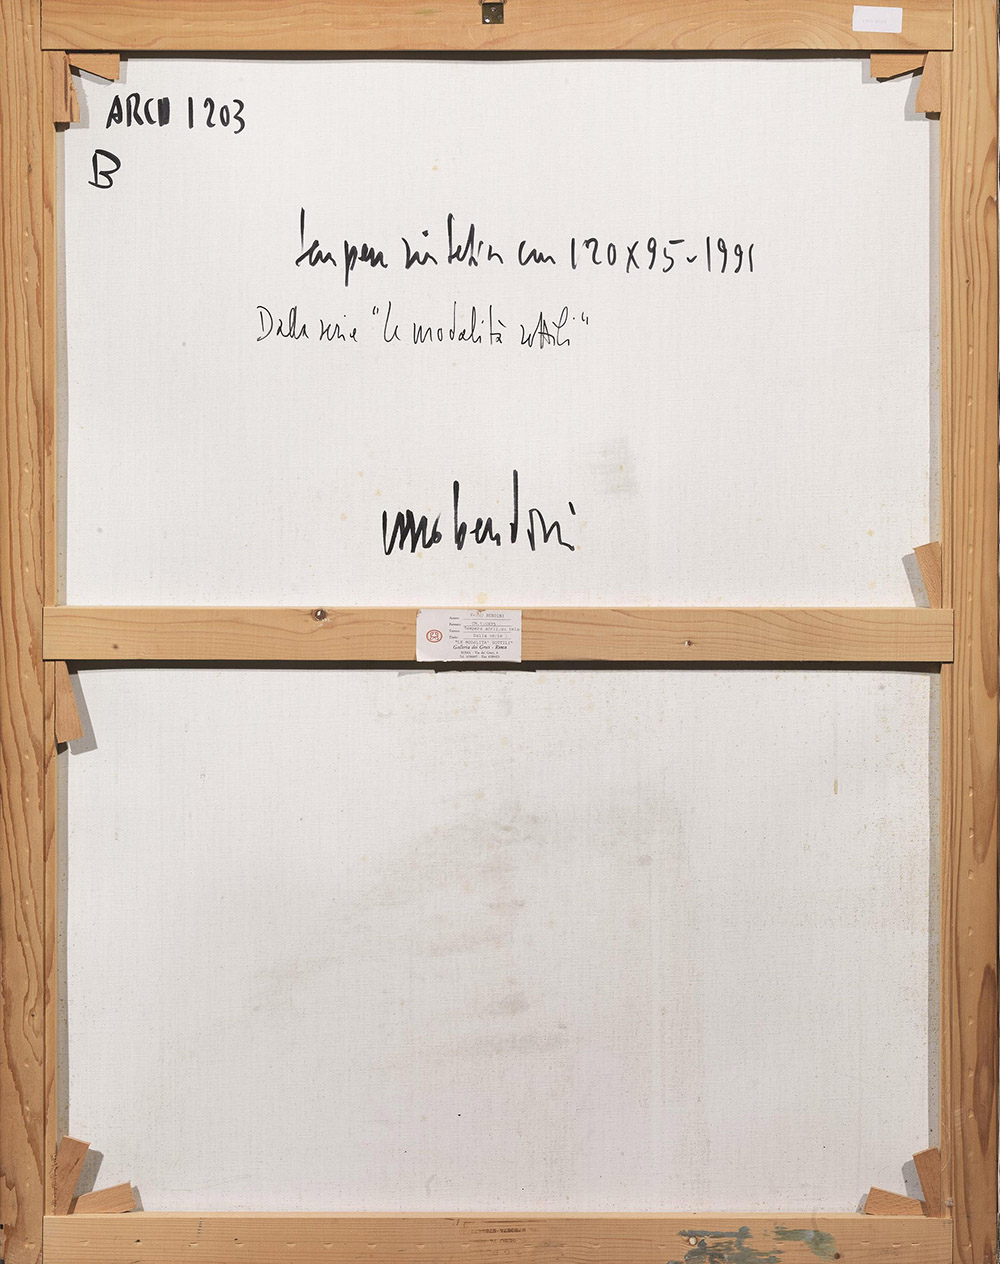 ARCH 1203
B
tempera sintetica cm 120x95-1991
Dalla serie "le modalità sottili"
enzo bendini
Autore:
Formato:
Tecnica: Tempera acril. su tela
Titolo: Dalla serie :
"LE MODALITA' SOTTILI"
Galleria dei Greci - Roma
ROMA - Via dei Greci, 6